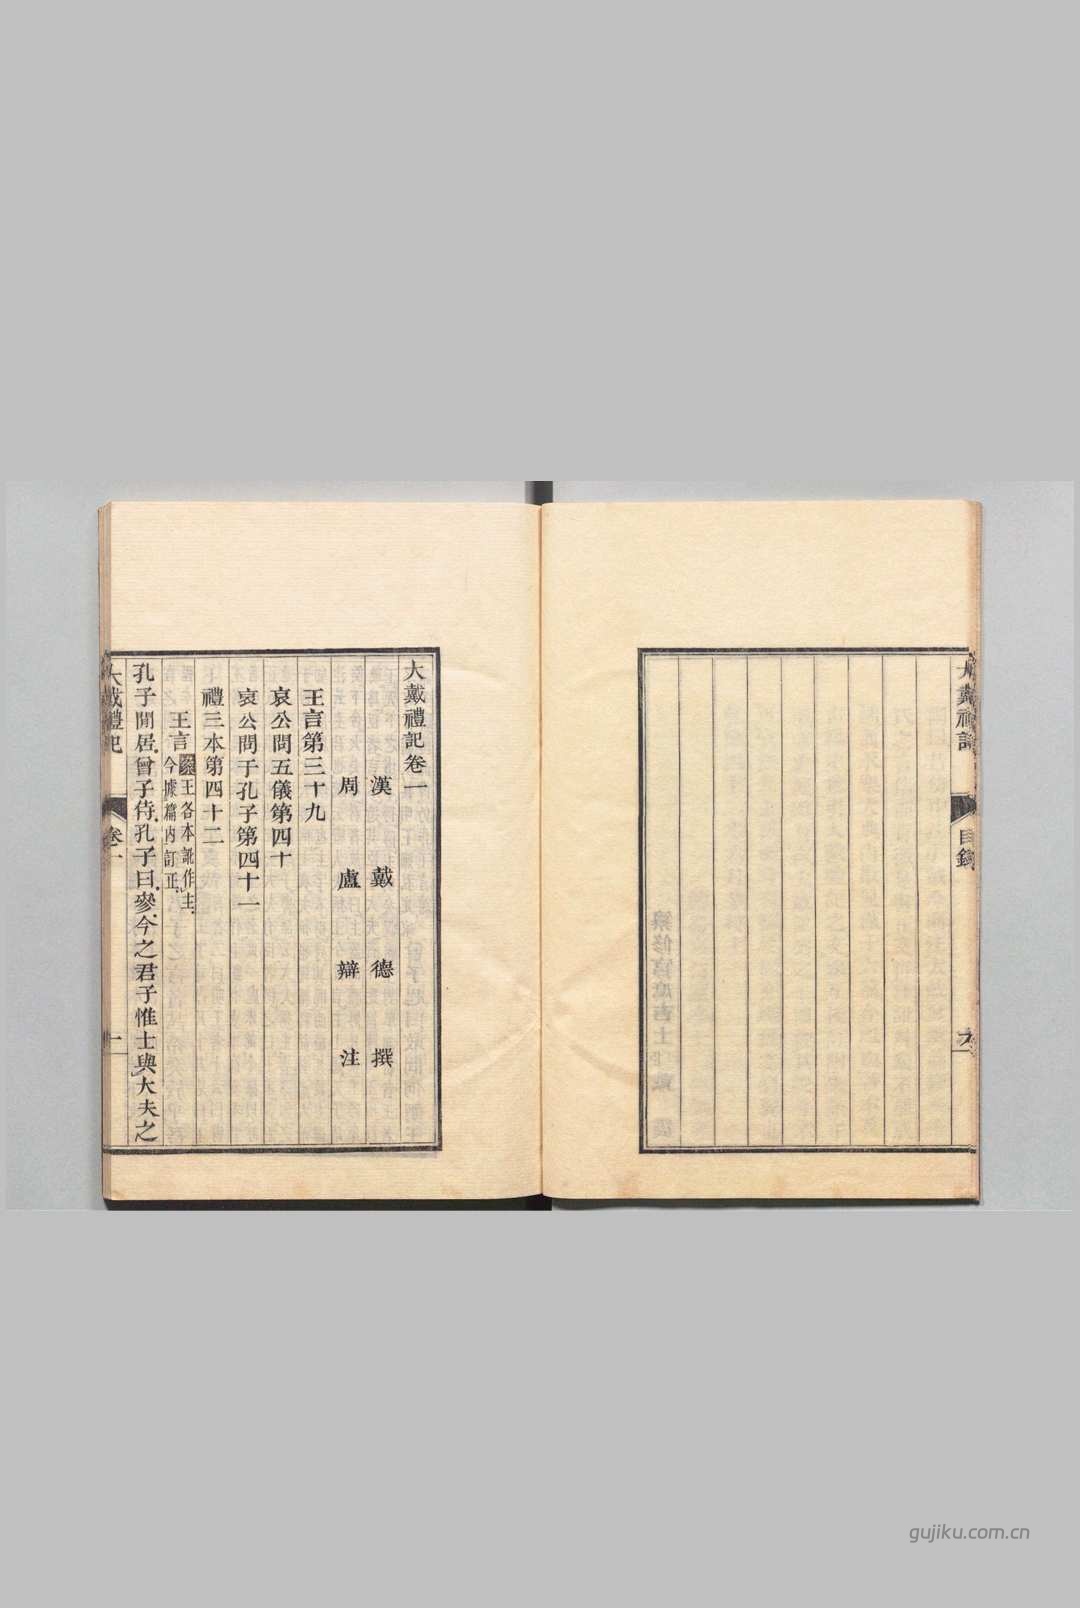 大戴禮記
目錄
大戴禮記卷一
漢 戴 德 撰
周 盧 辯 注
王言第三十九
哀公問五儀第四十
哀公問于孔子第四十一
禮三本第四十二
王言 案王各本訛作主
今據篇内訂正
孔子閒居曾子侍孔子曰參今之君子惟士與大夫之
大戴禮記
卷一
一
gujiku.com.cn